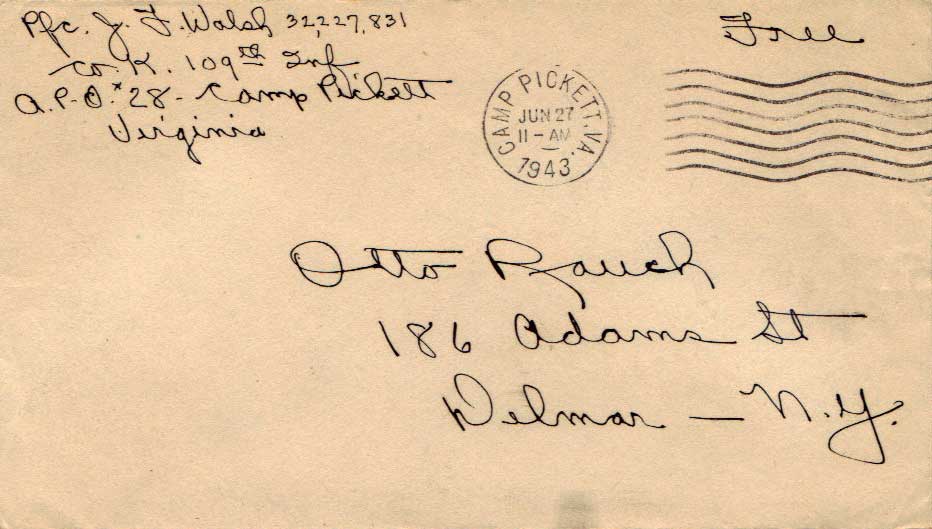 Pfc. J. F. Walsh 32,227,831
Co. K. 109th Inf
A.P.O. # 28 - Camp Pickett
Virginia
Free
CAMP PICKETT, VA.
JUN 27
11 - AM
1943
Otto Rauch
186 Adams St
Delmar — N.Y.